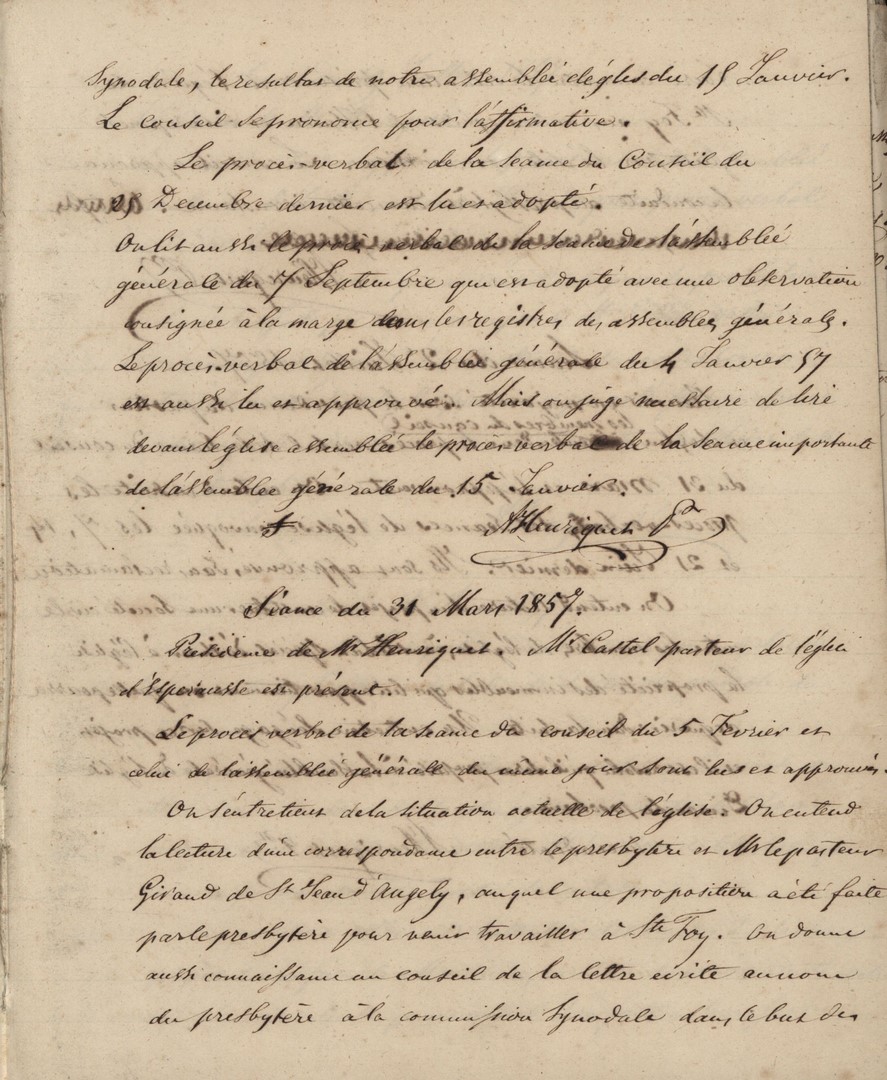 Synodale, le resultat de notre assemblée d'église du 15 Janvier.
Le conseil se prononce pour l'affirmative.
Le procès-verbal de la séance du Conseil du
29 Decembre dernier est lu et adopté.
On lit aussi le procès verbal de la séance de l'assemblée
générale du 7 Septembre qui est adopté avec une observation
consignée à la marge dans les registres des assemblées générales.
Le procès-verbal de l'assemblée générale du 4 Janvier 57
est aussi lu et approuvé. Mais on juge necessaire de lire
devant l'église assemblée le procès verbal de la séance importante
de l'assemblée générale du 15 Janvier.
A Henriquet Pr
Séance du 31 Mars 1857.
Présidence de Mr Henriquet. Mr Castel pasteur de l'église
d'Esperausse est présent.
Le procès verbal de la séance du conseil du 5 Fevrier et
celui de l'assemblée générale du même jour sont lus et approuvés.
On s'entretient de la situation actuelle de l'église. On entend
la lecture d'une correspondance entre le presbytère et Mr le pasteur
Giraud de St Jean d'Angely, auquel une proposition a été faite
par le presbytère pour venir travailler à Ste Foy. On donne
aussi connaissance au conseil de la lettre écrite au nom
du presbytère à la commission Synodale dans le but des